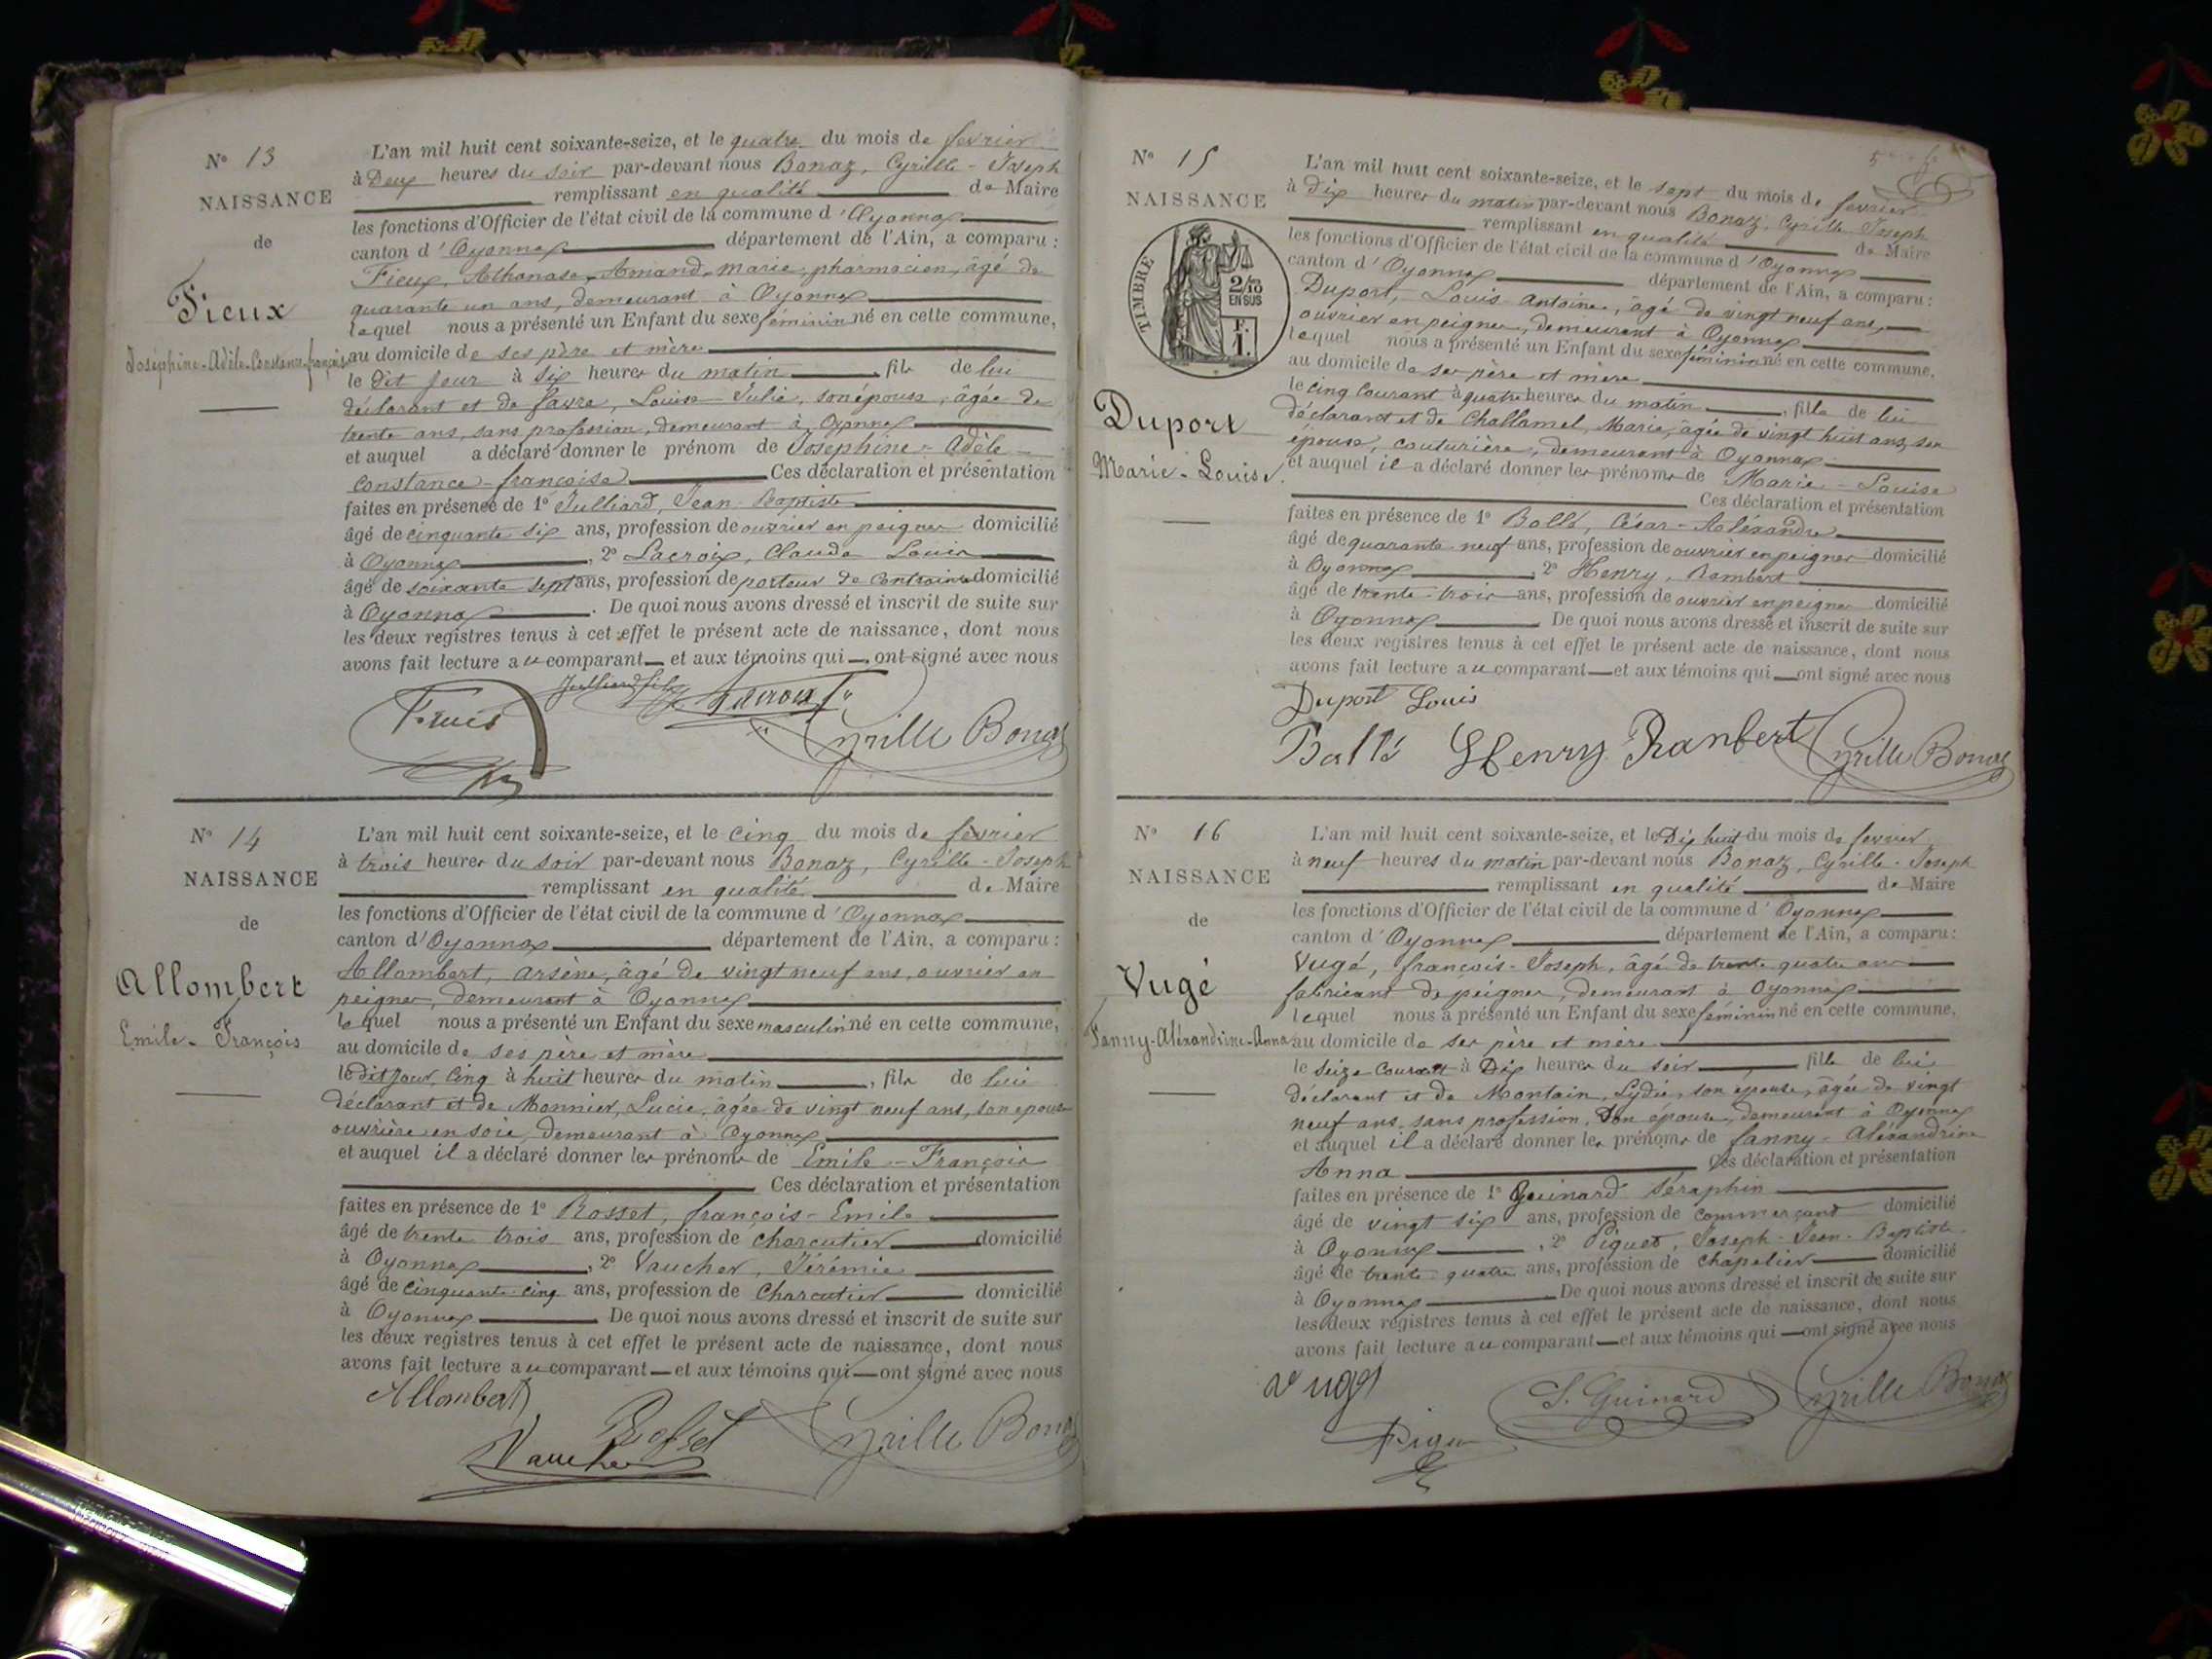 N° 13
NAISSANCE
de
Fieux
Joséphine-Adèle-Constance-françoise
L'an mil huit cent soixante-seize, et le quatre du mois de fevrier
à Deux heures du soir par-devant nous Bonaz, Cyrille-Joseph
remplissant en qualité de Maire
les fonctions d'Officier de l'état civil de la commune d'Oyonnax
canton d'Oyonnax département de l'Ain, a comparu :
Fieux, Athanase, Amand, marie, pharmacien, âgé de
quarante un ans, demeurant à Oyonnax
lequel nous a présenté un Enfant du sexe féminin né en cette commune,
au domicile de ses père et mère
le dit jour à six heures du matin, fils de lui
déclarant et de favre, Louise Julie, son épouse, âgée de
trente ans, sans profession, demeurant à Oyonnax
et auquel a déclaré donner le prénom de Josephine-Adèle-
Constance-françoise Ces déclaration et présentation
faites en présence de 1° Julliard, Jean-Baptiste
âgé de cinquante six ans, profession de ouvrier en peignes domicilié
à Oyonnax, 2° Lacroix, Claude Louis
âgé de soixante sept ans, profession de porteur de Contrainte domicilié
à Oyonnax. De quoi nous avons dressé et inscrit de suite sur
les deux registres tenus à cet effet le présent acte de naissance, dont nous
avons fait lecture au comparant et aux témoins qui ont signé avec nous
Julliard fils Lacroix
Fieux Cyrille Bonaz
N° 14
NAISSANCE
de
Allombert
Emile-François
L'an mil huit cent soixante-seize, et le cinq du mois de fevrier
à trois heures du soir par-devant nous Bonaz, Cyrille-Joseph
remplissant en qualité de Maire
les fonctions d'Officier de l'état civil de la commune d'Oyonnax
canton d'Oyonnax département de l'Ain, a comparu :
Allombert, Arsène, âgé de vingt neuf ans, ouvrier en
peignes, demeurant à Oyonnax
lequel nous a présenté un Enfant du sexe masculin né en cette commune,
au domicile de ses père et mère
le dit jour, cinq à huit heures du matin, fils de lui
déclarant et de Monnier, Lucie, âgée de vingt neuf ans, son epouse
ouvrière en soie, demeurant à Oyonnax
et auquel il a déclaré donner les prénoms de Emile-François
Ces déclaration et présentation
faites en présence de 1° Rosset, françois-Emile
âgé de trente trois ans, profession de charcutier domicilié
à Oyonnax, 2° Vaucher, Jérémie
âgé de cinquante cinq ans, profession de Charcutier domicilié
à Oyonnax De quoi nous avons dressé et inscrit de suite sur
les deux registres tenus à cet effet le présent acte de naissance, dont nous
avons fait lecture au comparant et aux témoins qui ont signé avec nous
Allombert
Rosset Cyrille Bonaz
Vaucher
N° 15
NAISSANCE
TIMBRE
2/10
EN SUS
F.
1.
Duport
Marie-Louise
L'an mil huit cent soixante-seize, et le sept du mois de fevrier
à dix heures du matin par-devant nous Bonaz, Cyrille-Joseph
remplissant en qualité de Maire
les fonctions d'Officier de l'état civil de la commune d'Oyonnax
canton d'Oyonnax département de l'Ain, a comparu :
Duport, Louis-Antoine, âgé de vingt neuf ans,
ouvrier en peignes, demeurant à Oyonnax
lequel nous a présenté un Enfant du sexe féminin né en cette commune,
au domicile de ses père et mère
le cinq Courant à quatre heures du matin, fille de lui
déclarant et de Challamel, Marie, âgée de vingt huit ans, son
épouse, couturière, demeurant à Oyonnax
et auquel il a déclaré donner les prénoms de Marie-Louise
Ces déclaration et présentation
faites en présence de 1° Bollé, César-Aléxandre
âgé de quarante neuf ans, profession de ouvrier en peignes domicilié
à Oyonnax, 2° Henry, Rambert
âgé de trente trois ans, profession de ouvrier en peignes domicilié
à Oyonnax De quoi nous avons dressé et inscrit de suite sur
les deux registres tenus à cet effet le présent acte de naissance, dont nous
avons fait lecture au comparant et aux témoins qui ont signé avec nous
Duport Louis
Ballé Henry Ranbert Cyrille Bonaz
N° 16
NAISSANCE
de
Vugé
Fanny-Aléxandrine-Anna
L'an mil huit cent soixante-seize, et le Dix huit du mois de fevrier
à neuf heures du matin par-devant nous Bonaz, Cyrille-Joseph
remplissant en qualité de Maire
les fonctions d'Officier de l'état civil de la commune d'Oyonnax
canton d'Oyonnax département de l'Ain, a comparu :
Vugé, françois-Joseph, âgé de trente quatre ans
fabricant de peignes, demeurant à Oyonnax
lequel nous a présenté un Enfant du sexe féminin né en cette commune,
au domicile de ses père et mère
le seize Courant à Dix heures du soir, fille de lui
déclarant et de Montain, Lydie, son épouse, âgée de vingt
neuf ans, sans profession, Son épouse, demeurant à Oyonnax
et auquel il a déclaré donner les prénoms de fanny-Aléxandrine
Anna Ces déclaration et présentation
faites en présence de 1° Guinard Séraphin
âgé de vingt six ans, profession de Commerçant domicilié
à Oyonnax, 2° Piguet, Joseph-Jean-Baptiste
âgé de trente quatre ans, profession de Chapelier domicilié
à Oyonnax De quoi nous avons dressé et inscrit de suite sur
les deux registres tenus à cet effet le présent acte de naissance, dont nous
avons fait lecture au comparant et aux témoins qui ont signé avec nous
Vugé S. Guinard Cyrille Bonaz